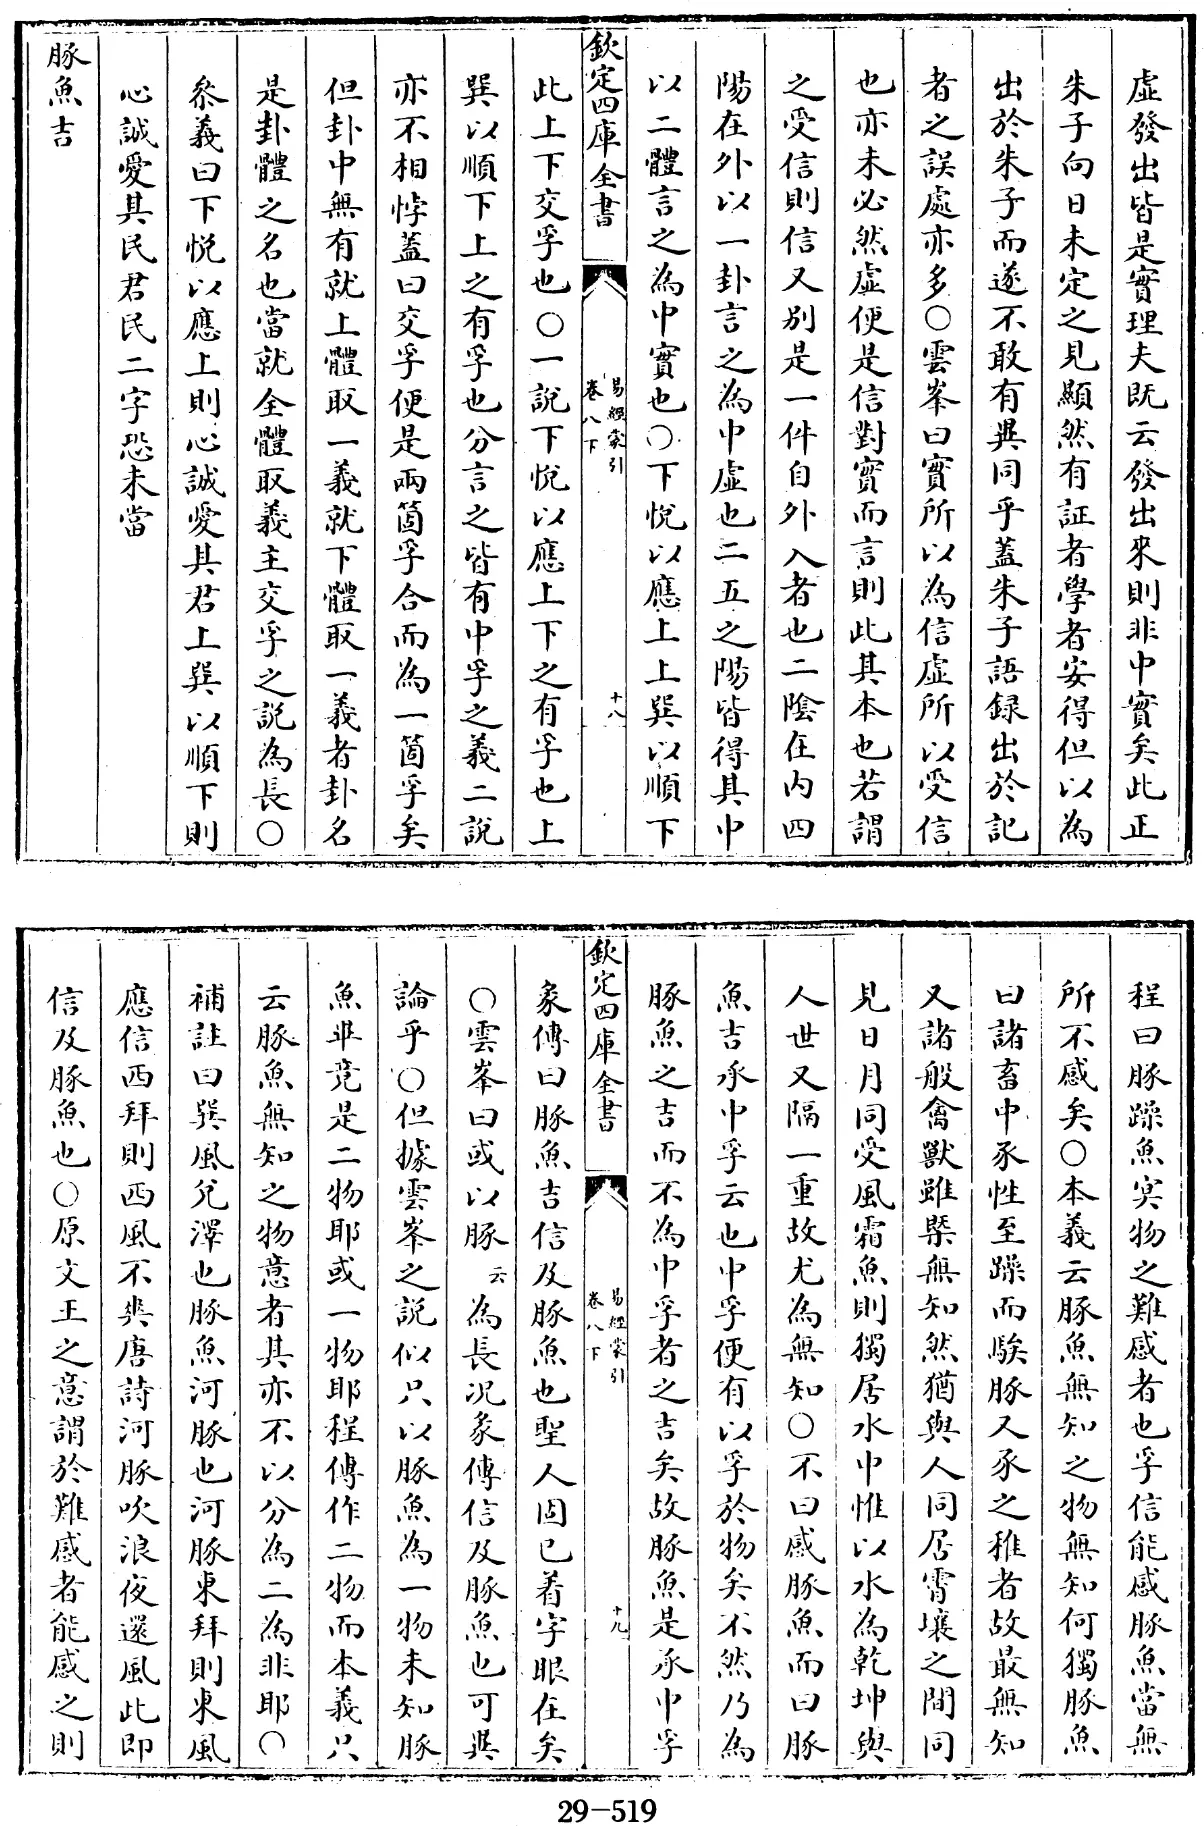 虛發出皆是實理夫既云發出來則非中實矣此正
朱子向日未定之見顯然有証者學者安得但以為
出於朱子而遂不敢有異同乎蓋朱子語録出於記
者之誤處亦多○雲峯曰實所以為信虛所以受信
也亦未必然虛便是信對實而言則此其本也若謂
之受信則信又别是一件自外入者也二隂在内四
陽在外以一卦言之為中虛也二五之陽皆得其中
以二體言之為中實也○下悅以應上上巽以順下
欽定四庫全書
易經蒙引
卷八下
十八
此上下交孚也○一說下悅以應上下之有孚也上
巽以順下上之有孚也分言之皆有中孚之義二說
亦不相悖蓋曰交孚便是兩箇孚合而為一箇孚矣
但卦中無有就上體取一義就下體取一義者卦名
是卦體之名也當就全體取義主交孚之說為長○
叅義曰下悅以應上則心誠愛其君上巽以順下則
心誠愛其民君民二字恐未當
豚魚吉
程曰豚躁魚㝠物之難感者也孚信能感豚魚當無
所不感矣○本義云豚魚無知之物無知何獨豚魚
曰諸畜中豕性至躁而騃豚又豕之稚者故最無知
又諸般禽獸雖槩無知然猶與人同居霄壤之間同
見日月同受風霜魚則獨居水中惟以水為乾坤與
人世又隔一重故尤為無知○不曰感豚魚而曰豚
魚吉承中孚云也中孚便有以孚於物矣不然乃為
豚魚之吉而不為中孚者之吉矣故豚魚是承中孚
欽定四庫全書
易經蒙引
卷八下
十九
彖傳曰豚魚吉信及豚魚也聖人固已着字眼在矣
○雲峯曰或以豚云為長况彖傳信及豚魚也可異
論乎○但據雲峯之說似只以豚魚為一物未知豚
魚畢竟是二物耶或一物耶程傳作二物而本義只
云豚魚無知之物意者其亦不以分為二為非耶○
補註曰巽風兌澤也豚魚河豚也河豚東拜則東風
應信西拜則西風不爽唐詩河豚吹浪夜還風此即
信及豚魚也○原文王之意謂於難感者能感之則
29-519